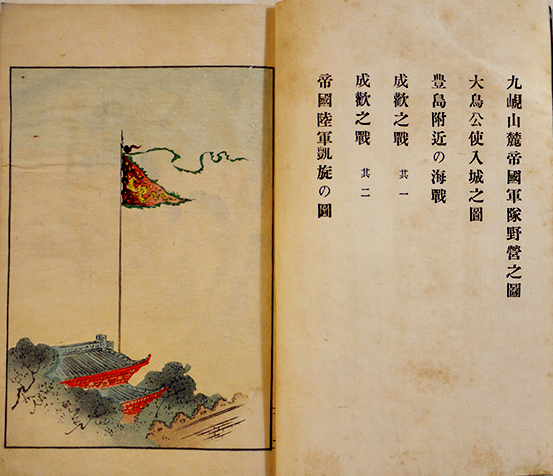 九峴山麓帝國軍隊野營之圖
大鳥公使入城之圖
豊島附近の海戰
成歡之戰 其一
成歡之戰 其二
帝國陸軍凱旋の圖